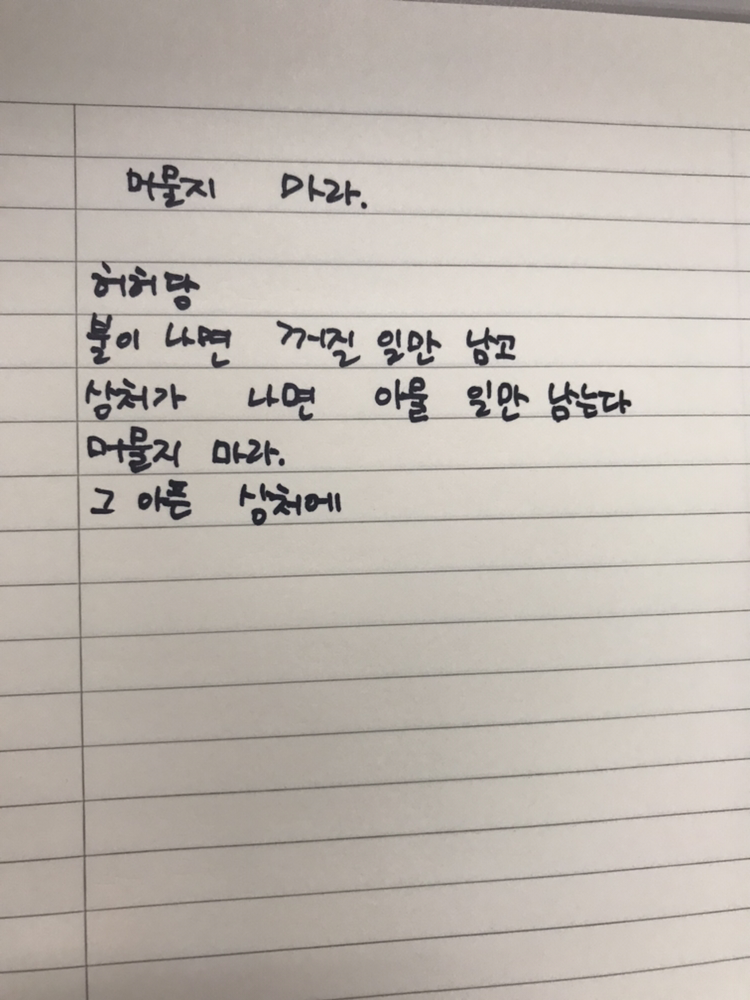 머물지 마라.
허허당
불이 나면 꺼질 일만 남고
상처가 나면 아물 일만 남는다
머물지 마라.
그 아픈 상처에